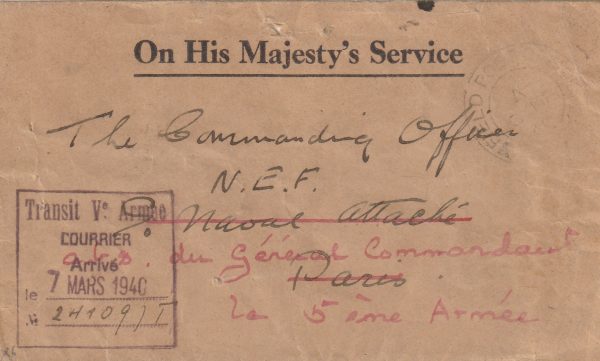 On His Majesty's Service
The Commanding Officer
N.E.F.
Naval Attaché
a.b.s. du Général Commandant
Paris.
la 5ème Armée
Transit Vᵉ Armée
COURRIER
Arrivé
le 7 MARS 1940
№ 24109/I
FIELD P